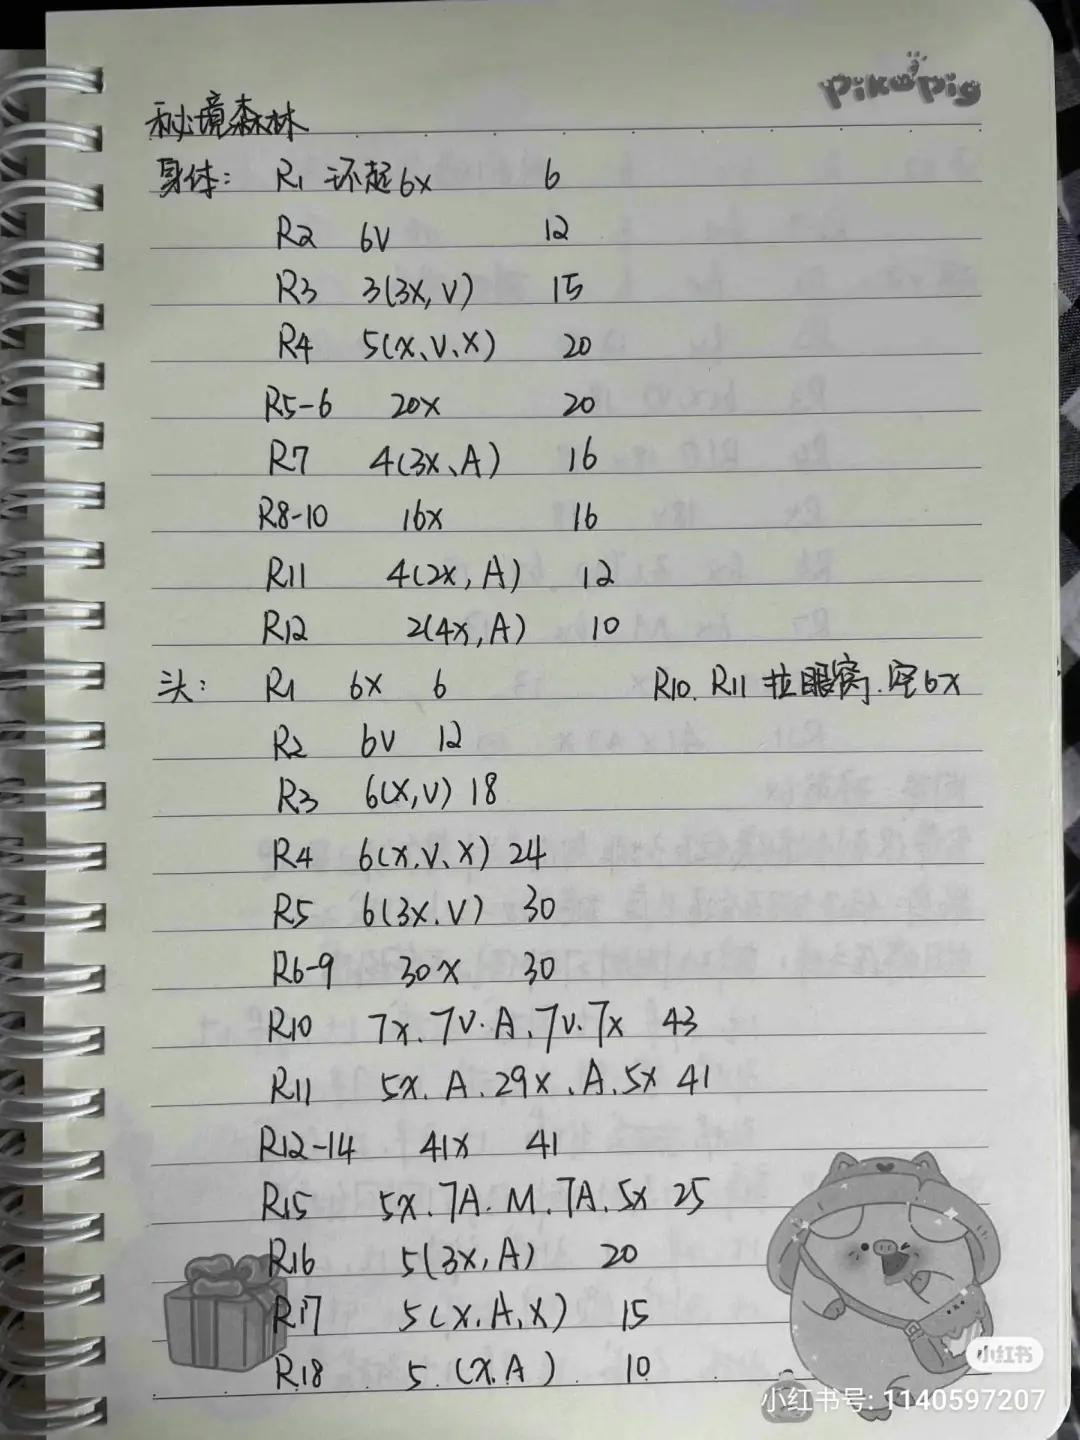 PikoPig
秘境森林
身体: R1 环起6x 6
R2 6V 12
R3 3(3x, V) 15
R4 5(x、V、x) 20
R5-6 20x 20
R7 4(3x、A) 16
R8-10 16x 16
R11 4(2x, A) 12
R12 2(4x, A) 10
头: R1 6x 6 R10. R11 拉眼窝. 空6x
R2 6V 12
R3 6(x, V) 18
R4 6(x. V. x) 24
R5 6(3x. V) 30
R6-9 30x 30
R10 7x. 7V. A. 7V. 7x 43
R11 5x. A. 29x. A. 5x 41
R12-14 41x 41
R15 5x. 7A. M. 7A. 5x 25
R16 5(3x, A) 20
R17 5(x. A. x) 15
R18 5. (x. A) 10
小红书
小红书号: 1140597207